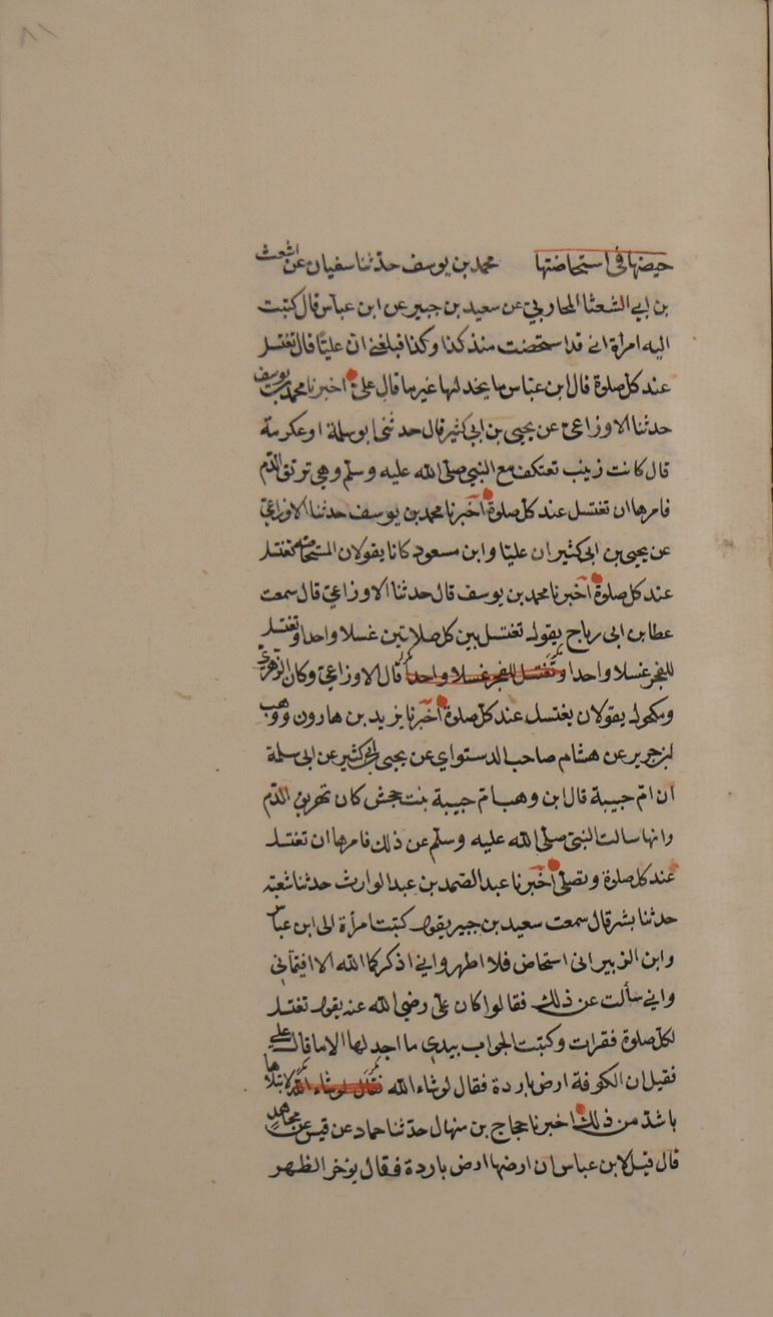 حيضها في استحاضتها محمد بن يوسف حدثنا سفيان عن اشعث
بن ابي الشعثا المحاربي عن سعيد بن جبير عن ابن عباس قال كتبت
اليه امراة اني قد استحضت منذ كذا وكذا فبلغني ان عليّا قال تغتسل
عند كل صلوة قال ابن عباس ما يجد لها غير ما قال علي اخبرنا محمد بن يوسف
حدثنا الاوزاعي عن يحيى بن ابي كثير قال حدثني ابو سلمة او عكرمة
قال كانت زينب تعتكف مع النبي صلى الله عليه وسلم وهي تريق الدم
فامرها ان تغتسل عند كل صلوة اخبرنا محمد بن يوسف حدثنا الاوزاعي
عن يحيى بن ابي كثير ان عليا وابن مسعود كانا يقولان المستحاضه تغتسل
عند كل صلوة اخبرنا محمد بن يوسف قال حدثنا الاوزاعي قال سمعت
عطا بن ابي رباح يقول تغتسل بين كل صلاتين غسلا واحدا وتغتسل
للفجر غسلا واحدا وتغتسل للفجر غسلا واحدا قال الاوزاعي وكان الزهري
ومكحول يقولان يغتسل عند كل صلوة اخبرنا يزيد بن هارون ووهب
بن جرير عن هشام صاحب الدستواي عن يحيى بن ابي كثير عن ابي سلمة
ان ام حبيبة قال ابن وهب ام حبيبة بنت جحش كان تهريق الدم
وانها سالت النبي صلى الله عليه وسلم عن ذلك فامرها ان تغتسل
عند كل صلوة وتصلي اخبرنا عبد الصمد بن عبد الوارث حدثنا شعبة
حدثنا بشر قال سمعت سعيد بن جبير يقول كتبت امرأة الى ابن عباس
وابن الزبير اني استحاض فلا اطهر واني اذكركما الله الا افتياني
واني سألت عن ذلك فقالوا كان علي رضي الله عنه يقول تغتسل
لكل صلوة فقرات وكتبت الجواب بيدي ما اجد لها الا ما قال علي
فقيل ان الكوفة ارض باردة فقال لو شاء الله فقال لو شاء الله لابتلاها
باشد من ذلك اخبرنا حجاج بن منهال حدثنا حماد عن قيس عن مجاهد
قال قيل لابن عباس ان ارضها ارض باردة فقال يؤخر الظهر